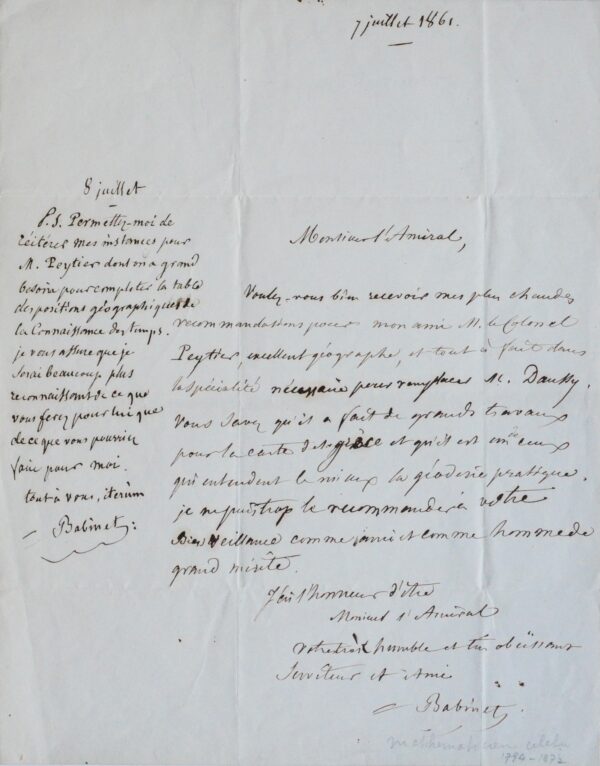 7 juillet 1861.
Monsieur l'Amiral,
Voulez-vous bien recevoir mes plus chaudes
recommandations pour mon ami M. le Colonel
Peytier, excellent géographe, et tout à fait dans
la spécialité nécessaire pour remplacer M. Daussy.
Vous savez qu'il a fait de grands travaux
pour la carte de la grèce et qu'il est un de ceux
qui entendent le mieux la géodésie pratique.
je ne puis trop le recommander à votre
Bienveillance comme ami et comme homme de
grand mérite.
J'ai l'honneur d'être
Monsieur l'Amiral
votre très humble et très obéissant
Serviteur et Ami
Babinet
8 juillet
P.S. Permettez-moi de
réitérer mes instances pour
M. Peytier dont on a grand
besoin pour completer la table
des positions géographiques de
la Connaissance des temps.
je vous assure que je
serai beaucoup plus
reconnaissant de ce que
vous ferez pour lui que
de ce que vous pourriez
faire pour moi.
tout à vous, iterùm
Babinet
mathématicien célèbre
1794-1872